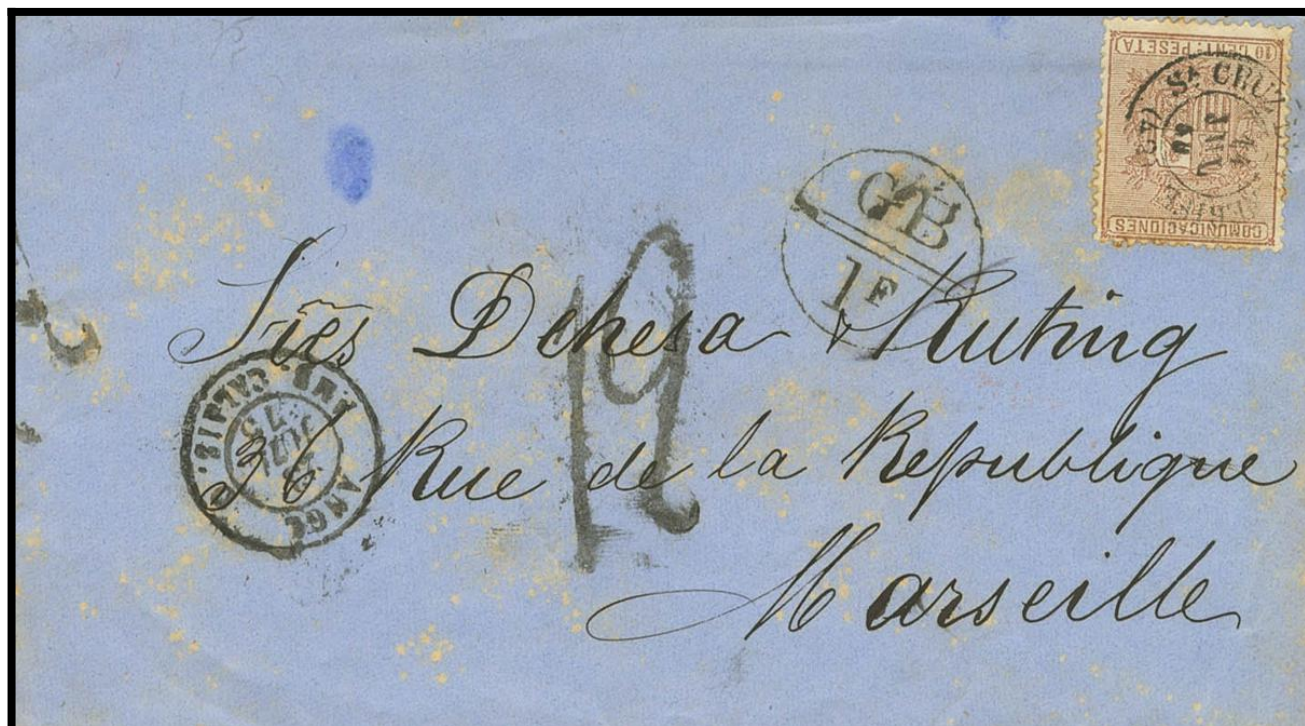 10 CENT. PESETA
COMUNICACIONES
Sta CRUZ
14
JUN
GB
1F
12
Sres Dehesa Ruting
36 Rue de la Republique
Marseille
ANGL.
AMB. CALAIS.
75